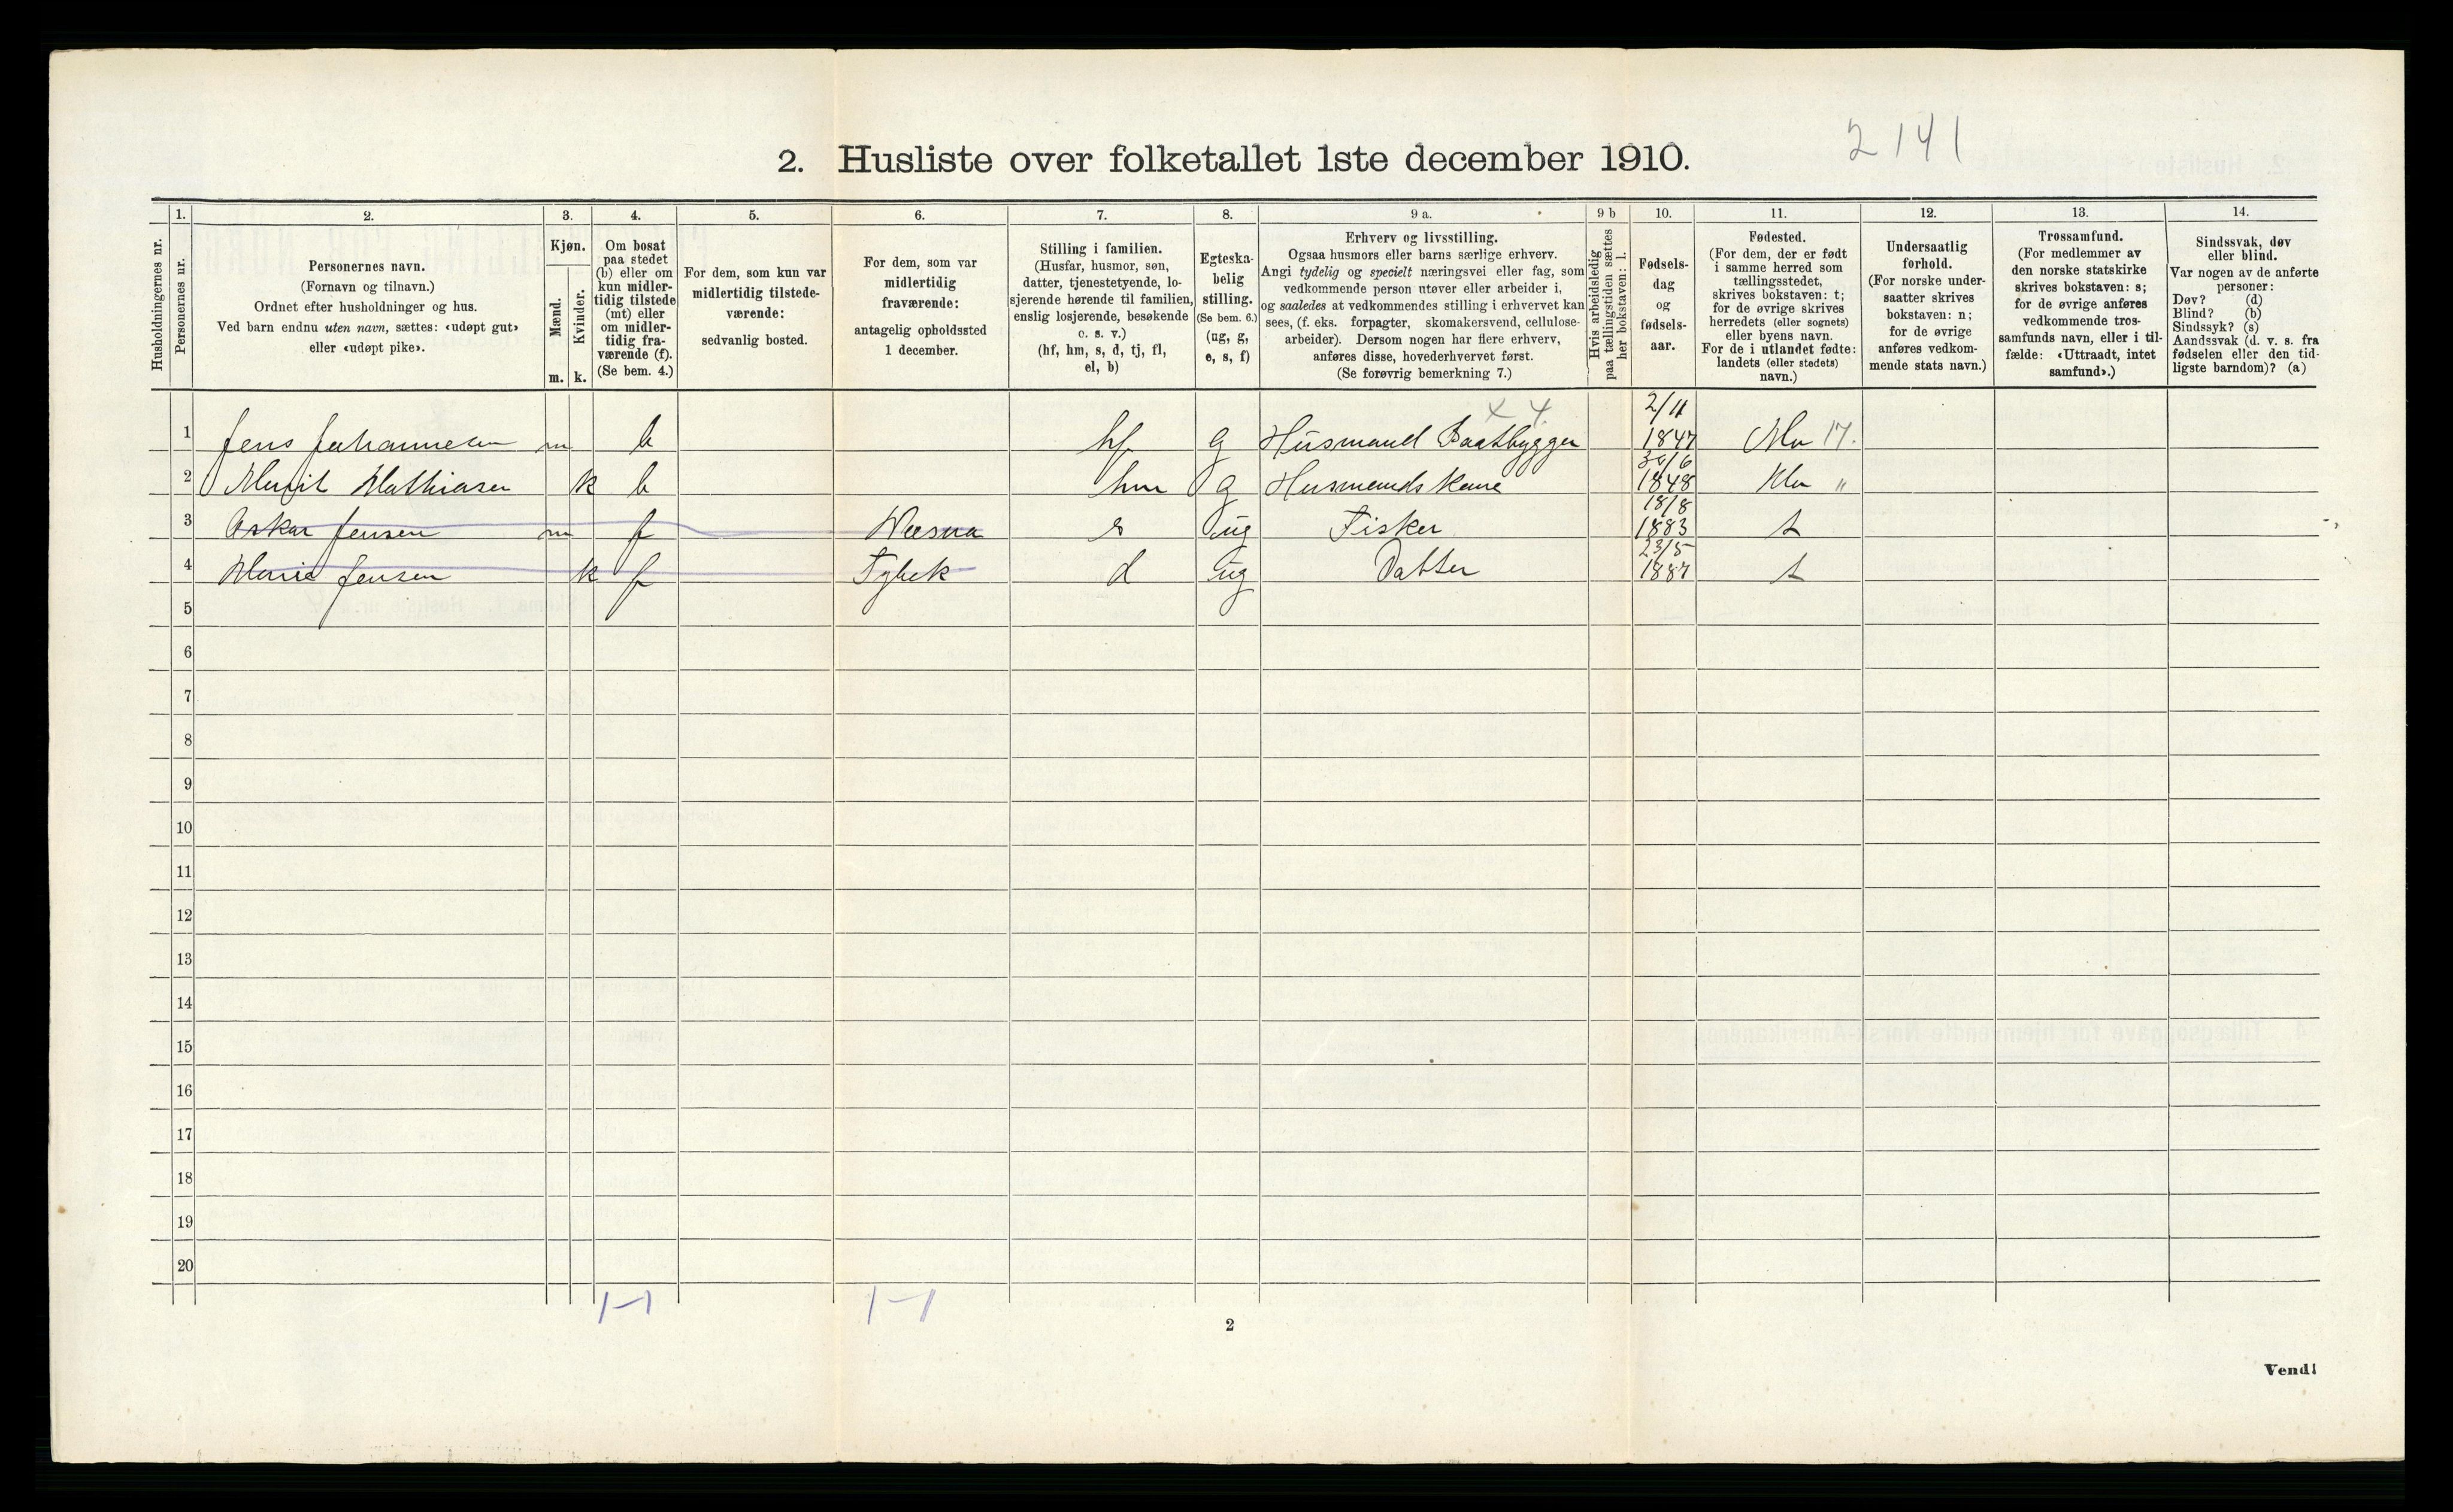 2141
2. Husliste over folketallet 1ste december 1910.
Husholdningernes nr.
1.
Personernes nr.
2.
Personernes navn.
(Fornavn og tilnavn.)
Ordnet efter husholdninger og hus.
Ved barn endnu uten navn, sættes: «udøpt gut»
eller «udøpt pike».
3.
Kjøn.
Mænd.
Kvinder.
m. k.
4.
Om bosat
paa stedet
(b) eller om
kun midler-
tidig tilstede
(mt) eller
om midler-
tidig fra-
værende (f).
(Se bem. 4.)
5.
For dem, som kun var
midlertidig tilstede-
værende:
sedvanlig bosted.
6.
For dem, som var
midlertidig
fraværende:
antagelig opholdssted
1 december.
7.
Stilling i familien.
(Husfar, husmor, søn,
datter, tjenestetyende, lo-
sjerende hørende til familien,
enslig losjerende, besøkende
o. s. v.)
(hf, hm, s, d, tj, fl,
el, b)
8.
Egteska-
belig
stilling.
(Se bem. 6.)
(ug, g,
e, s, f)
9 a.
Erhverv og livsstilling.
Ogsaa husmors eller barns særlige erhverv.
Angi tydelig og specielt næringsvei eller fag, som
vedkommende person utøver eller arbeider i,
og saaledes at vedkommendes stilling i erhvervet kan
sees, (f. eks. forpagter, skomakersvend, cellulose-
arbeider). Dersom nogen har flere erhverv,
anføres disse, hovederhvervet først.
(Se forøvrig bemerkning 7.)
9 b
Hvis arbeidsledig
paa tællingstiden sættes
her bokstaven: l.
10.
Fødsels-
dag
og
fødsels-
aar.
11.
Fødested.
(For dem, der er født
i samme herred som
tællingsstedet,
skrives bokstaven: t;
for de øvrige skrives
herredets (eller sognets)
eller byens navn.
For de i utlandet fødte:
landets (eller stedets)
navn.)
12.
Undersaatlig
forhold.
(For norske under-
saatter skrives
bokstaven: n;
for de øvrige
anføres vedkom-
mende stats navn.)
13.
Trossamfund.
(For medlemmer av
den norske statskirke
skrives bokstaven: s;
for de øvrige anføres
vedkommende tros-
samfunds navn, eller i til-
fælde: «Uttraadt, intet
samfund».)
14.
Sindssvak, døv
eller blind.
Var nogen av de anførte
personer:
Døv? (d)
Blind? (b)
Sindssyk? (s)
Aandssvak (d. v. s. fra
fødselen eller den tid-
ligste barndom)? (a)
x 4.
1 Jens Johannesen m b hf g Husmand Baatbygger 2/11 1847 Mo 17.
2 Marit Mathiasen k b hm g Husmands Kone 30/6 1848 Mo "
3 Oskar Jensen m f s ug Fisker 18/8 1883 t
4 Maria Jensen k f d ug Datter 23/5 1887 t
5
6
7
8
9
10
11
12
13
14
15
16
17
18
19
20
1-1 1-1
2
Vend!